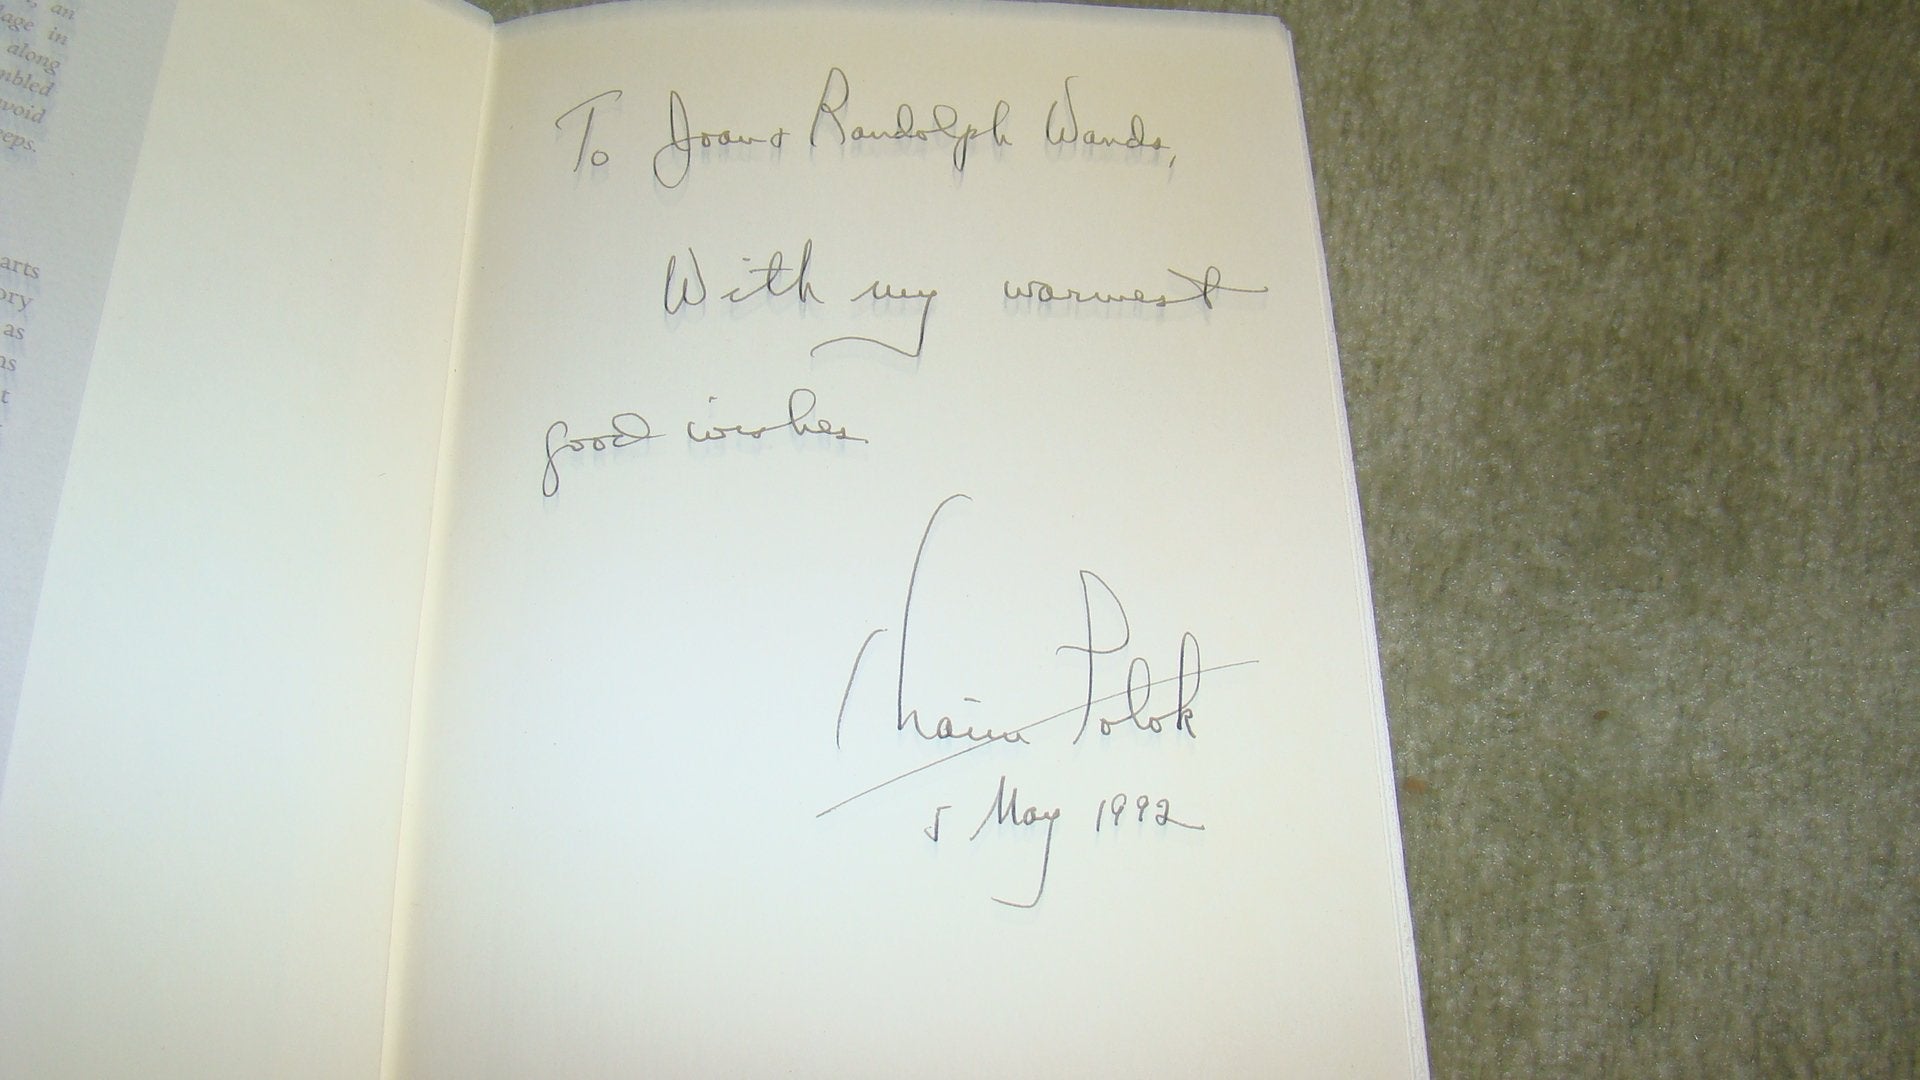 , an
age in
along
mbled
void
eps.
arts
ory
as
ns
t
To Joan & Randolph Wands,
With my warmest
good wishes
Chaim Potok
5 May 1992